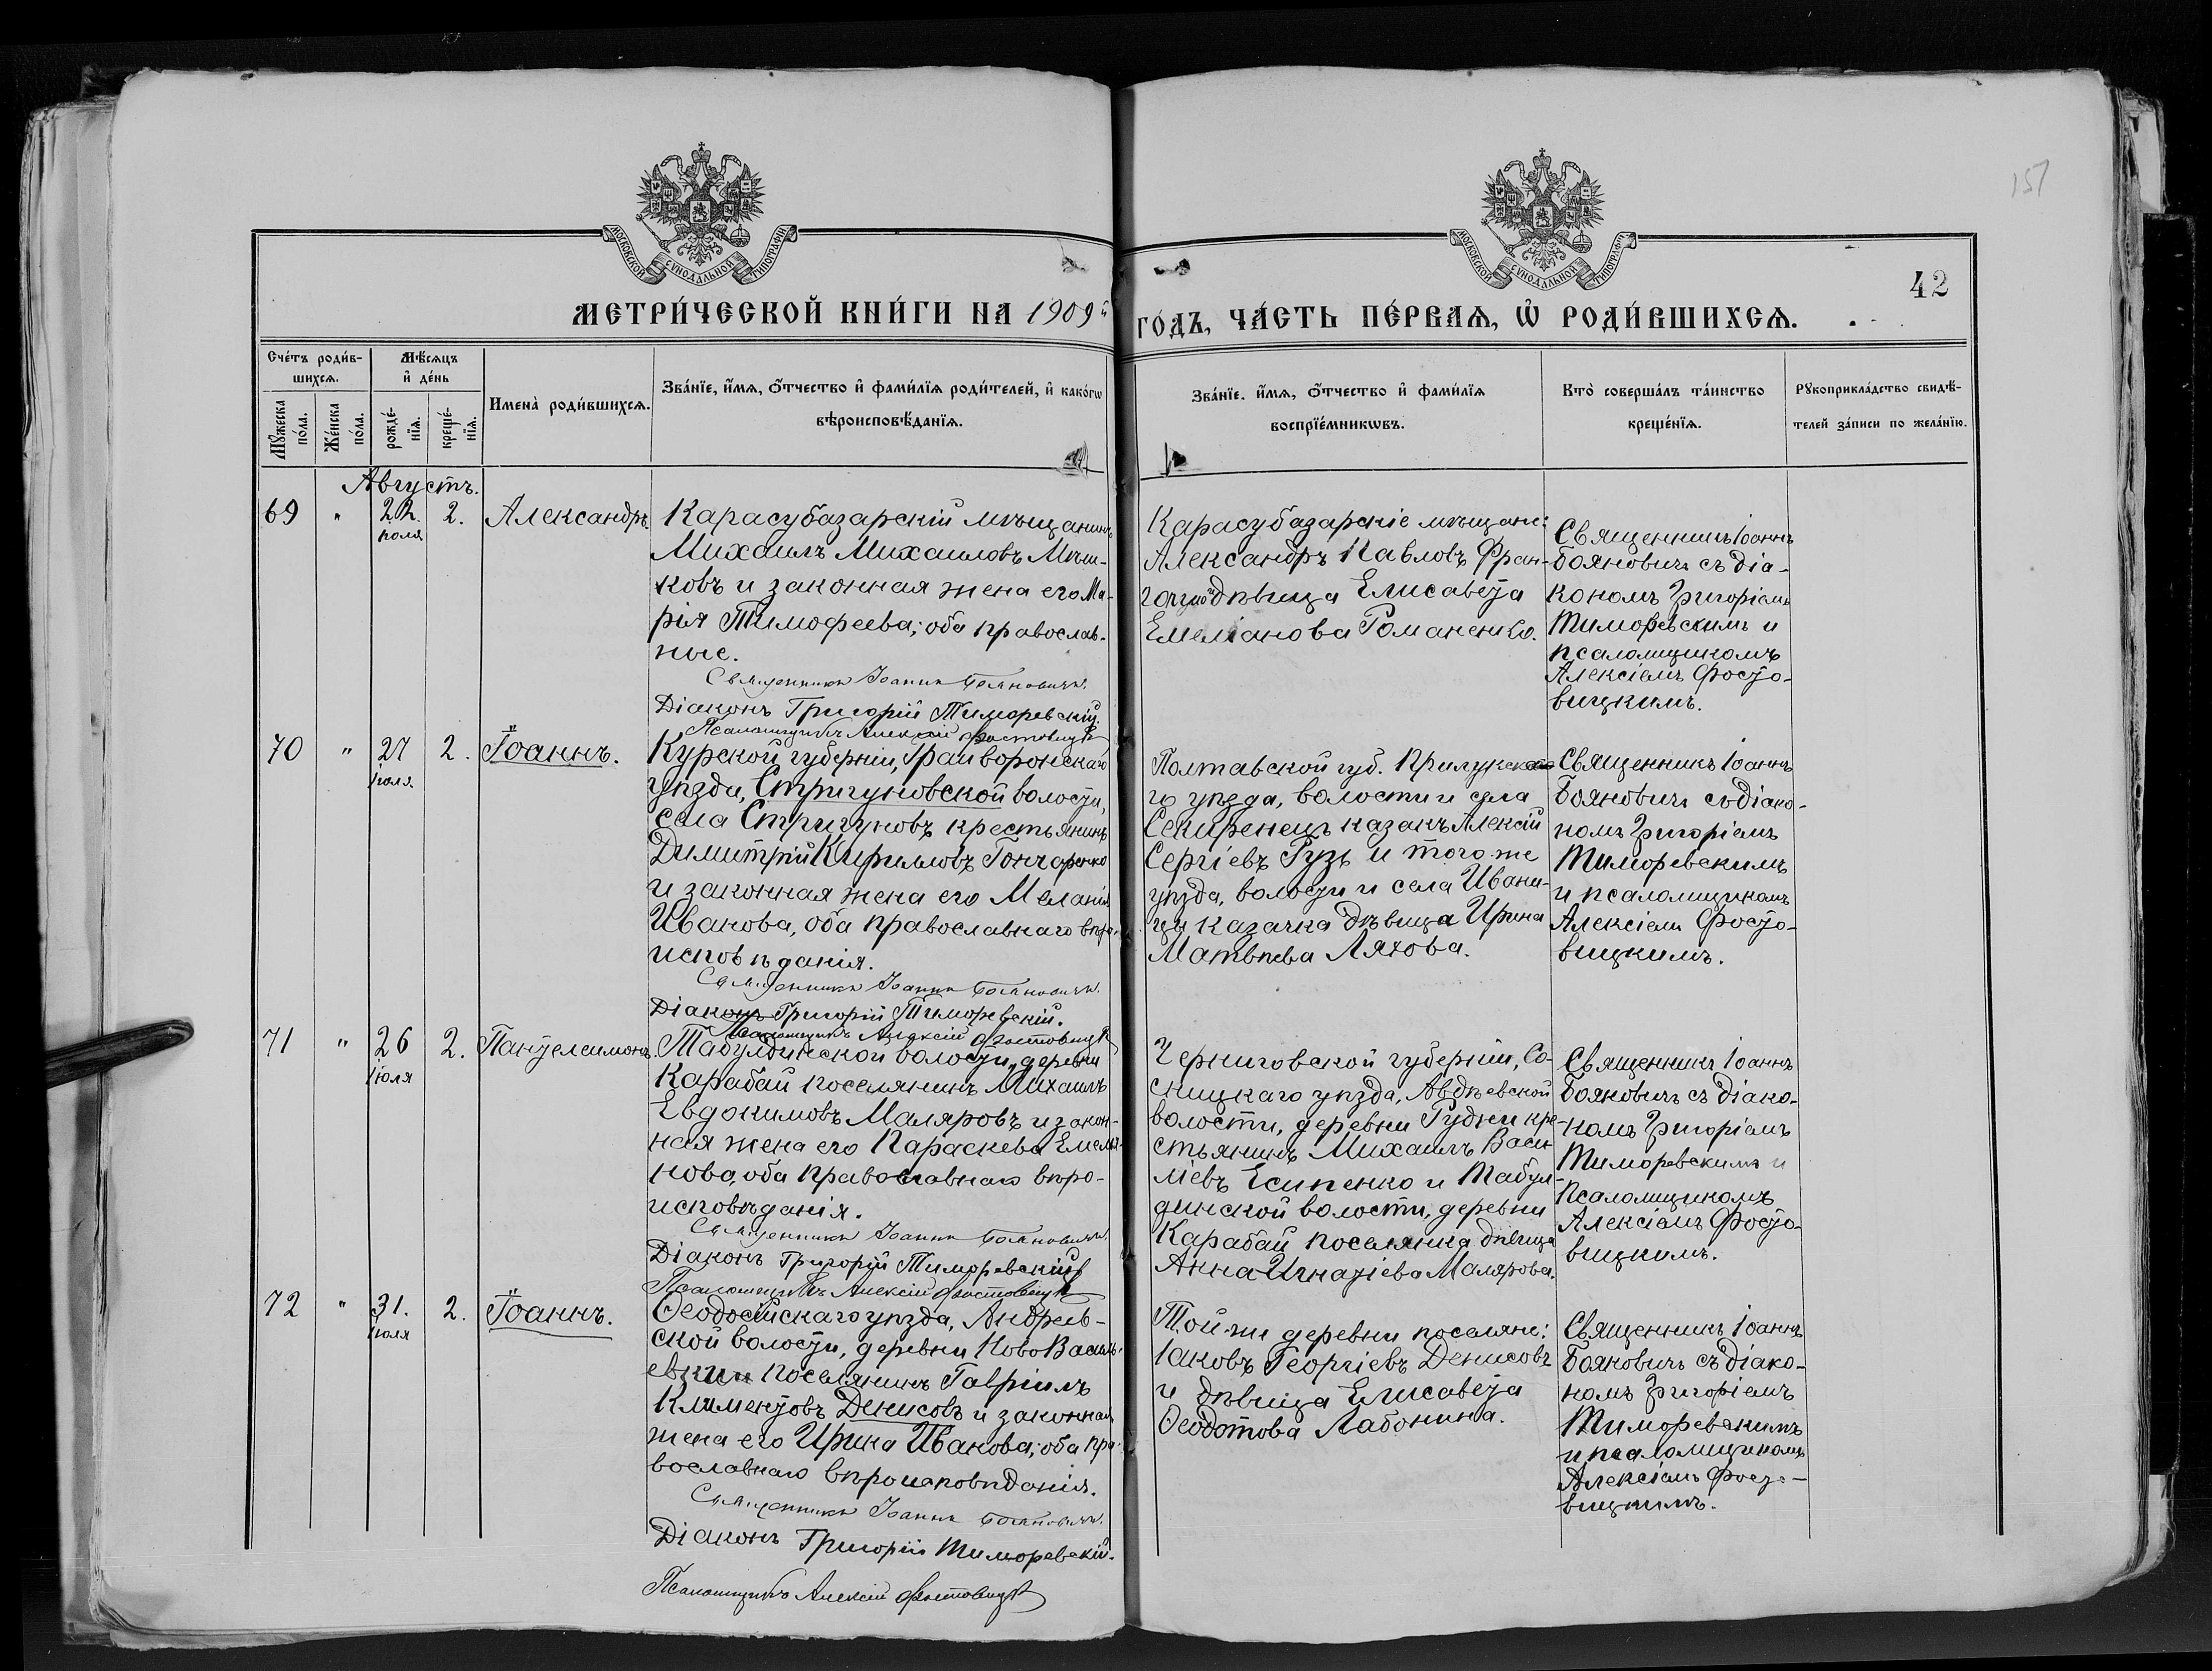 157
МОСКОВСКОЙ СѴНОДАЛЬНОЙ ТИПОГРАФІИ
МОСКОВСКОЙ СѴНОДАЛЬНОЙ ТИПОГРАФІИ
42
МЕТРИ́ЧЕСКОЙ КНИ́ГИ НА 1909й
ГО́ДЪ, ЧА́СТЬ ПЕ́РВАѦ, Ѡ҆ РОДИ́ВШИХСѦ.
Сче́тъ роди́в-
шихсѧ.
Мѣ́сѧцъ
и҆ де́нь
Мꙋ́жеска
по́ла.
Же́нска
по́ла.
рожде́-
нїѧ.
креще́-
нїѧ.
Имена̀ роди́вшихсѧ.
Зва́нїе, и҆́мѧ, ѻ҆́тчество и҆ фами́лїѧ роди́телей, и҆ како́гѡ
вѣроисповѣ́данїѧ.
Зва́нїе, и҆́мѧ, ѻ҆́тчество и҆ фами́лїѧ
воспрїе́мникѡвъ.
Кто̀ соверша́лъ та́инство
креще́нїѧ.
Рꙋкоприкла́дство свидѣ́-
телей за́писи по жела́нїю.
Августъ.
69 " 22. 2. Александръ.
іюля
Карасубазарскій мѣщанинъ
Михаилъ Михаиловъ Мѣш-
ковъ и законная жена его Ма-
рія Тимофеева; оба православ-
ные.
Священникъ Іоаннъ Бояновичъ.
Діаконъ Григорій Тиморевскій.
Псаломщикъ Алексій Фостовицкій
Карасубазарскіе мѣщане:
Александръ Павловъ Фран-
и дѣвица Елисавета
Емеліанова Романенко.
Священникъ Іоаннъ
Бояновичъ съ діа-
кономъ Григоріемъ
Тиморевскимъ и
псаломщикомъ
Алексіемъ Фосто-
вицкимъ.
70 " 27 2. Іоаннъ.
іюля.
Курской губерніи, Грайворонскаго
уѣзда, Стригуновской волости,
села Стригуновъ крестьянинъ
Димитрій Кирилловъ Гончаренко
и законная жена его Меланія
Иванова, оба православнаго вѣро-
исповѣданія.
Священникъ Іоаннъ Бояновичъ.
Діаконъ Григорій Тиморевскій.
Псаломщикъ Алексій Фостовицкій
Полтавской губ. Прилукска-
го уѣзда, волости и села
Секиренецъ казакъ Алексій
Сергіевъ Гузь и того же
уѣзда, волости и села Ивани-
цы казачка дѣвица Ирина
Матвѣева Ляхова.
Священникъ Іоаннъ
Бояновичъ съ діако-
номъ Григоріемъ
Тиморевскимъ
и псаломщикомъ
Алексіемъ Фосто-
вицкимъ.
71 " 26 2. Пантелеимонъ.
іюля
Табулдинской волости, деревни
Карабай поселянинъ Михаилъ
Евдокимовъ Маляровъ и закон-
ная жена его Параскева Емелья-
нова, оба православнаго вѣро-
исповѣданія.
Священникъ Іоаннъ Бояновичъ.
Діаконъ Григорій Тиморевскій
Псаломщикъ Алексій Фостовицкій
Черниговской губерніи, Со-
сницкаго уѣзда, Авдѣевской
волости, деревни Рудни кре-
стьянинъ Михаилъ Васи-
ліевъ Есипенко и Табул-
динской волости, деревни
Карабай поселянка дѣвица
Анна Игнатіева Малярова.
Священникъ Іоаннъ
Бояновичъ съ діако-
номъ Григоріемъ
Тиморевскимъ и
псаломщикомъ
Алексіемъ Фосто-
вицкимъ.
72 " 31. 2. Іоаннъ.
іюля
Ѳеодосійскаго уѣзда, Андреев-
ской волости, деревни Ново Василь-
евки поселянинъ Гавріилъ
Климентовъ Денисовъ и законная
жена его Ирина Иванова; оба пра-
вославнаго вѣроисповѣданія.
Священникъ Іоаннъ Бояновичъ.
Діаконъ Григорій Тиморевскій.
Псаломщикъ Алексій Фостовицкій
Той-же деревни поселяне:
Іаковъ Георгіевъ Денисовъ
и дѣвица Елисавета
Ѳеодотова Лабонина.
Священникъ Іоаннъ
Бояновичъ съ діако-
номъ Григоріемъ
Тиморевскимъ
и псаломщикомъ
Алексіемъ Фосто-
вицкимъ.